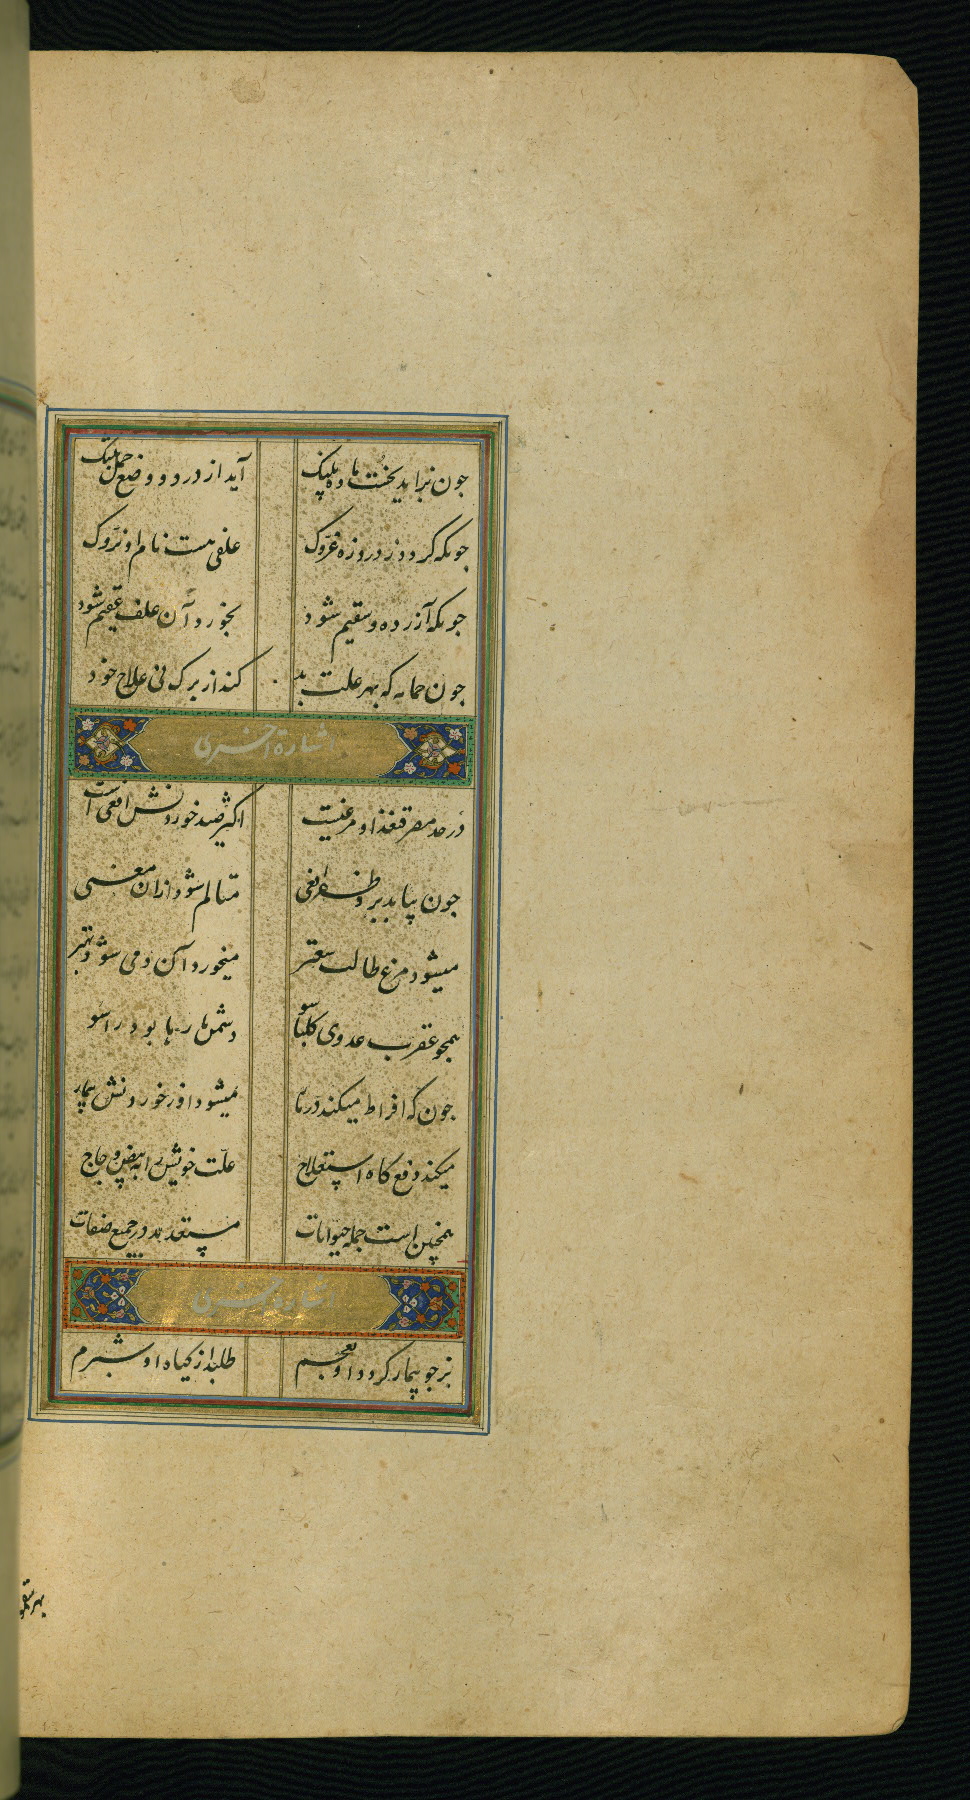 جون بزاید نخست ماده پلنک آید از درد و وضع حمل بتنک
جونکه کردد ز در دروزه غروک علفی هست نام او نزوک
جونکه آزرده و سقیم شود بخورد آن علف عقیم شود
جون حمایه که بهر علت بد کند از برک نی علاج خود
اشارة اخری
در حد مصر قنغذ او مرغیست اکثر صید خوردنش افعی است
جون بیابد برد ظفر افعی متالم شود ازان معنی
میشود مرغ طالب سعتر میخورد آن و می شود بهتر
همجو عقرب عدوی کلباسو دشمن مارها بود راسو
جون که افراط میکند در مار میشود از خوردنش بیمار
میکند دفع کاه استعلاج علت خویش را به بیض دجاج
همچنین است جمله حیوانات مستعد بد در جمیع صفات
اشارة اخری
نیز جو بیمار کردد او بعجم طلبد از کیاه او شبرم
بهر سقمو